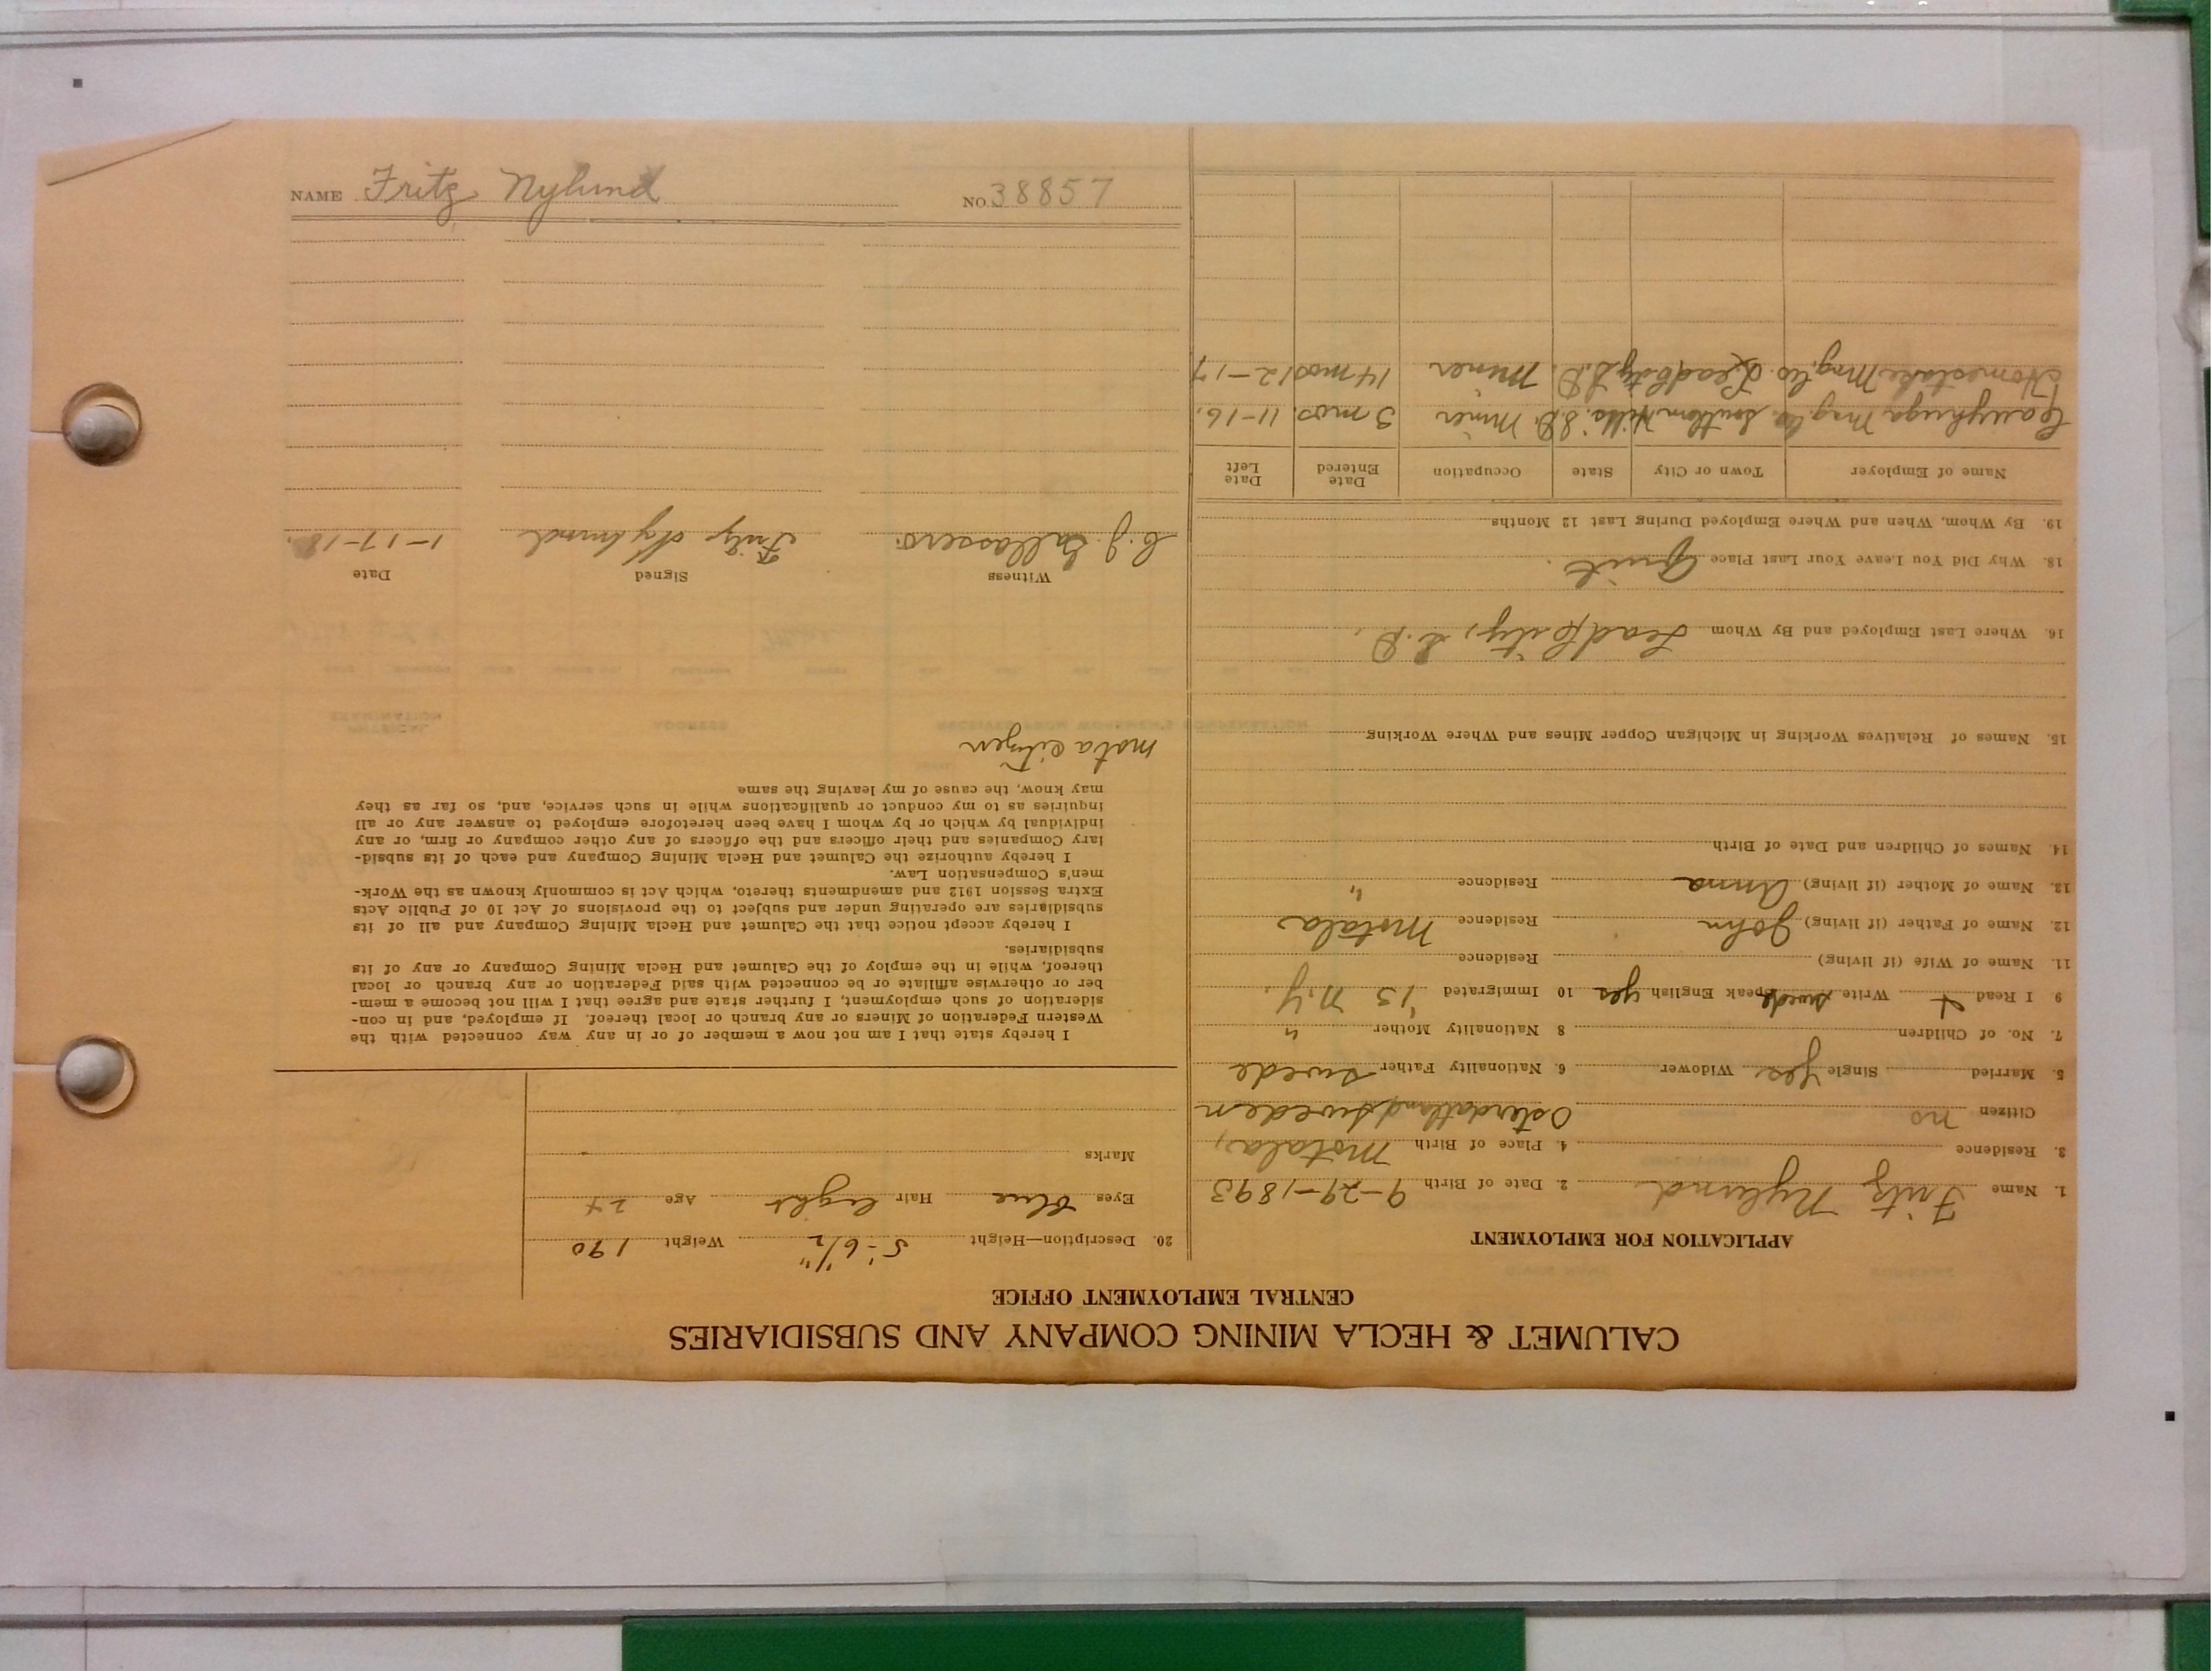 CALUMET & HECLA MINING COMPANY AND SUBSIDIARIES
CENTRAL EMPLOYMENT OFFICE
APPLICATION FOR EMPLOYMENT
1. Name Fritz Nylund 2. Date of Birth 9-29-1893
3. Residence 4. Place of Birth Motala,
Citizen no Osterdotland Sweden
5. Married Single Yes Widower 6. Nationality Father Swede
7. No. of Children 8 Nationality Mother "
9 I Read x Write Swede Speak English yes 10 Immigrated '13 N.Y.
11. Name of Wife (if living) Residence
12. Name of Father (if living) John Residence Motala
13. Name of Mother (if living) Anna Residence "
14. Names of Children and Date of Birth
15. Names of Relatives Working in Michigan Copper Mines and Where Working
16. Where Last Employed and By Whom Lead City, S.D.
18. Why Did You Leave Your Last Place Quit.
19. By Whom, When and Where Employed During Last 12 Months
Name of Employer Town or City State Occupation Date Entered Date Left
Mng. Co. Southern Hills. S.D. Miner 3 mos. 11-16.
Homestake Mng. Co. Lead City S.D. Miner 14 mos 12-17
20. Description—Height 5'-6 1/2" Weight 190
Eyes blue Hair light Age 24
Marks
I hereby state that I am not now a member of or in any way connected with the
Western Federation of Miners or any branch or local thereof. If employed, and in con-
sideration of such employment, I further state and agree that I will not become a mem-
ber or otherwise affiliate or be connected with said Federation or any branch or local
thereof, while in the employ of the Calumet and Hecla Mining Company or any of its
subsidiaries.
I hereby accept notice that the Calumet and Hecla Mining Company and all of its
subsidiaries are operating under and subject to the provisions of Act 10 of Public Acts
Extra Session 1912 and amendments thereto, which Act is commonly known as the Work-
men's Compensation Law.
I hereby authorize the Calumet and Hecla Mining Company and each of its subsid-
iary Companies and their officers and the officers of any other company or firm, or any
individual by which or by whom I have been heretofore employed to answer any or all
inquiries as to my conduct or qualifications while in such service, and, so far as they
may know, the cause of my leaving the same
not a citizen
Witness Signed Date
C. J. Fritz Nylund 1-17-18.
NAME Fritz Nylund NO. 38857